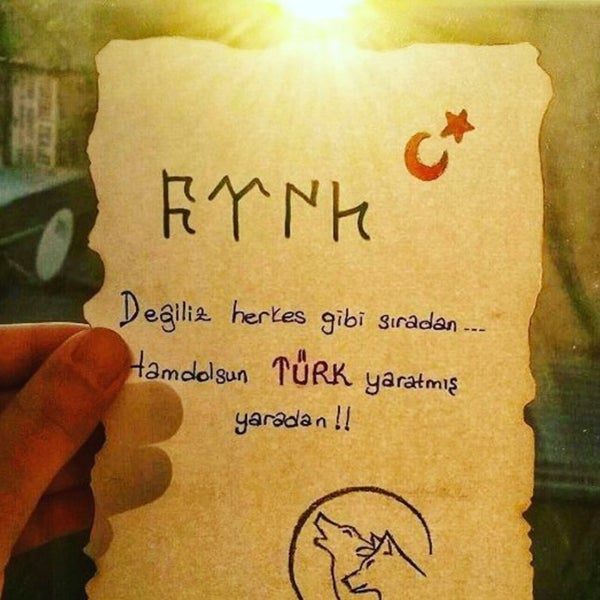 𐱅𐰇𐰼𐰚
Değiliz herkes gibi sıradan...
Hamdolsun TÜRK yaratmış
yaradan!!